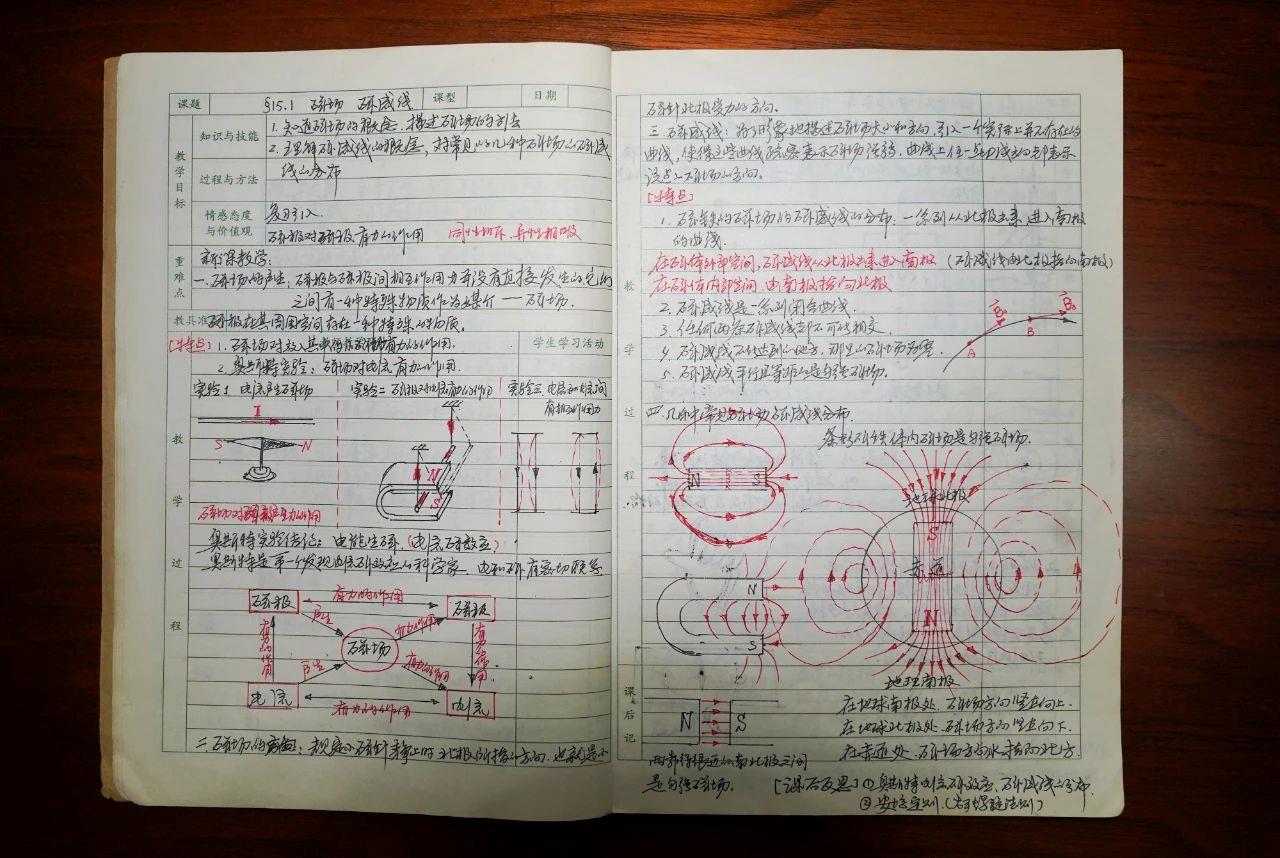 课题 §15.1 磁场 磁感线 课型 日期
教学目标
知识与技能 1. 知道磁场的概念,描述磁场的方法
2. 理解磁感线的概念,对常见的几种磁场的磁感
过程与方法 线的分布
情感态度与价值观 复习引入
磁极对磁极有力的作用 同性相斥、异性相吸
重难点 新课教学:
一. 磁场的产生:磁极与磁极间相互作用力并没有直接发生的,它们
之间有一种特殊物质作为媒介 —— 磁场.
教具准 磁极在其周围空间存在一种特殊的物质。
[特点] 1. 磁场对放入其中 有力的作用. 学生学习活动
2. 奥斯特实验:磁场对电流有力的作用.
教学过程
实验1 电流产生磁场 实验二 磁极对电流有力的作用 实验三 电流和电流间
有相互作用力
I
S N
N
S
磁场对 产生力的作用
奥斯特实验结论:电能生磁.(电流磁效应)
奥斯特是第一个发现电流磁效应的科学家. 电和磁有密切联系
磁极 有力的作用 磁极
产生 有力的作用
有力的作用 磁场 有力的作用
产生 有力的作用
电流 有力的作用 电流
二. 磁场的方向:规定小磁针静止时北极所指的方向. 也就是小
磁针北极受力的方向.
三. 磁感线:为了形象地描述磁场大小和方向,引入一个实际上并不存在的
曲线,使得这些曲线疏密表示磁场强弱,曲线上任一点切线方向都表示
该点的磁场的方向。
[特点]
1. 磁铁的磁场的磁感线的分布. 一系列从北极出来,进入南极
的曲线.
在磁体外部空间,磁感线从北极出来进入南极 (磁感线由北极指向南极)
在磁体内部空间 由南极指向北极
2. 磁感线是一系列闭合曲线.
3. 任何两条磁感线都不可能相交.
4. 磁感线不能达到的地方,那里的磁场为零.
5. 磁感线平行且等距的是匀强磁场.
A B
教学过程
四. 几种常见磁场磁感线分布
条形磁铁体内磁场是匀强磁场.
N S
地球北极
S
赤道
N
地理南极
N
S
课后记
N S
在地球南极处. 磁场方向竖直向上.
在地球北极处. 磁场方向竖直向下.
在赤道处. 磁场方向水平指向北方.
两靠得很近的南北极之间
是匀强磁场.
[课后反思] ①奥斯特电流磁效应. 磁感线的分布
②安培定则.(右手螺旋法则)